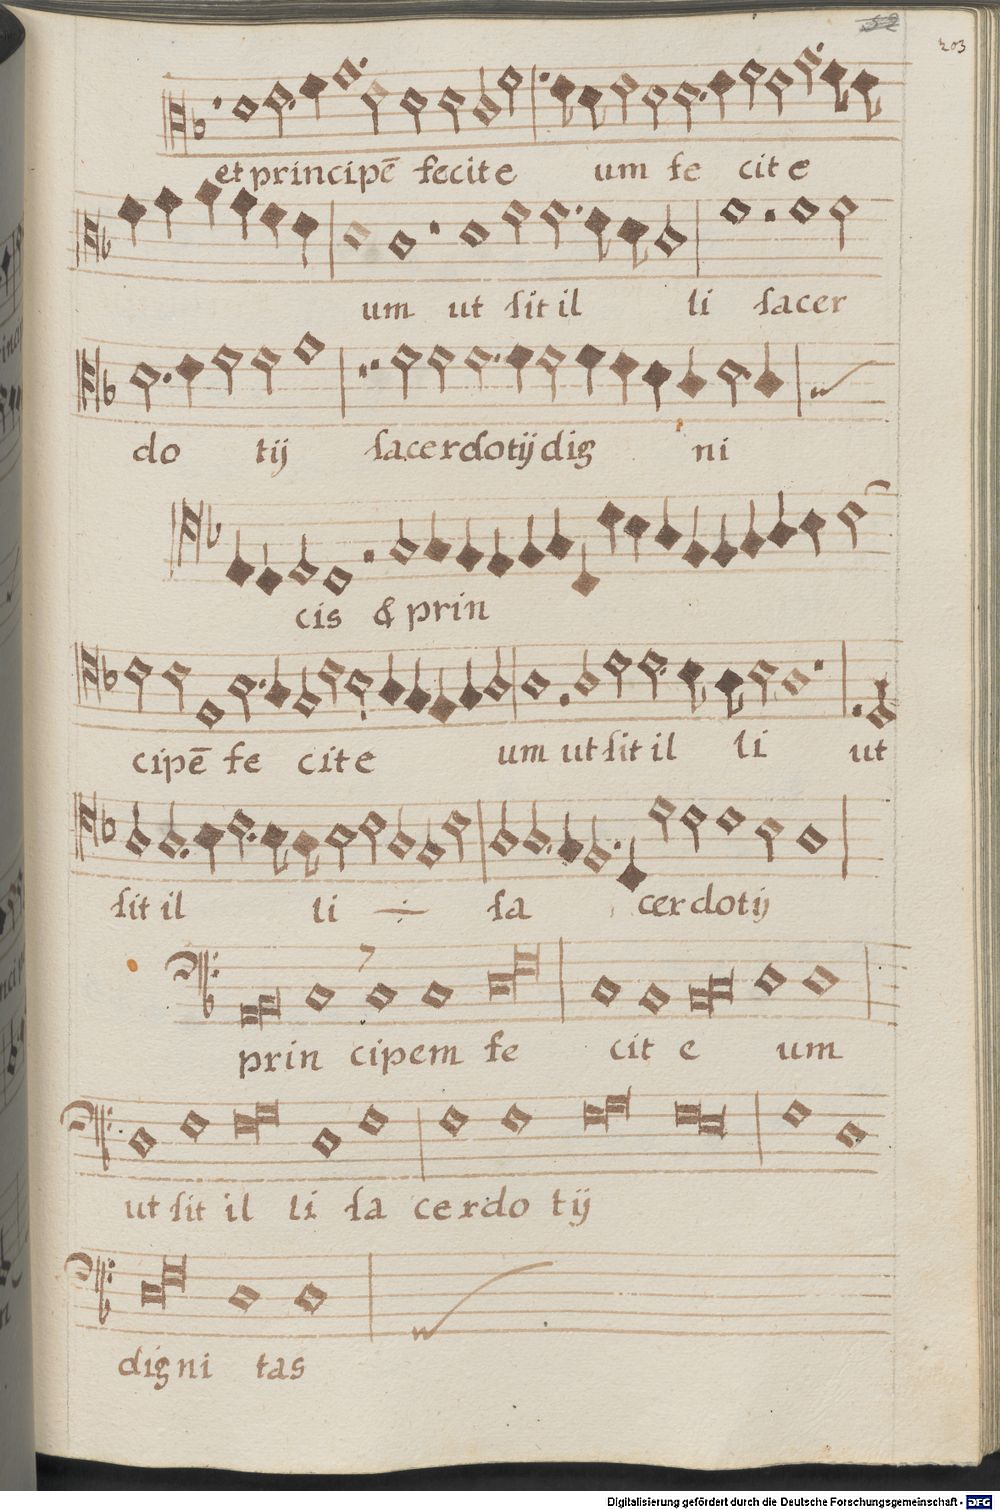 52
203
et principē fecit e um fe cit e
um ut sit il li sacer
do tij sacerdotij dig ni
cis & prin
cipē fe cit e um ut sit il li ut
sit il li ÷ sa cerdotij
7
prin cipem fe cit e um
ut sit il li sa cerdo tij
digni tas
Digitalisierung gefördert durch die Deutsche Forschungsgemeinschaft - DFG